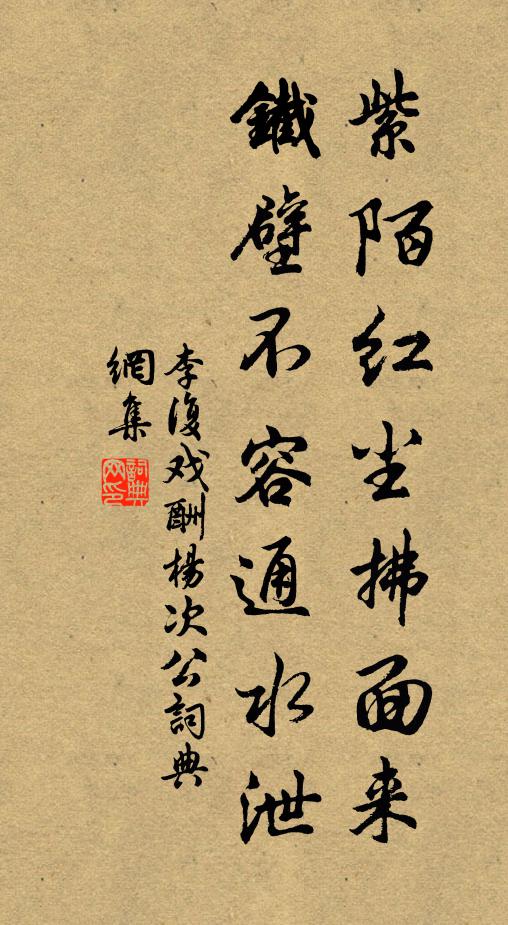 紫陌红尘拂面来
鐵壁不容通水泄
李復戏酬楊次公詞典
網集
詞典网印